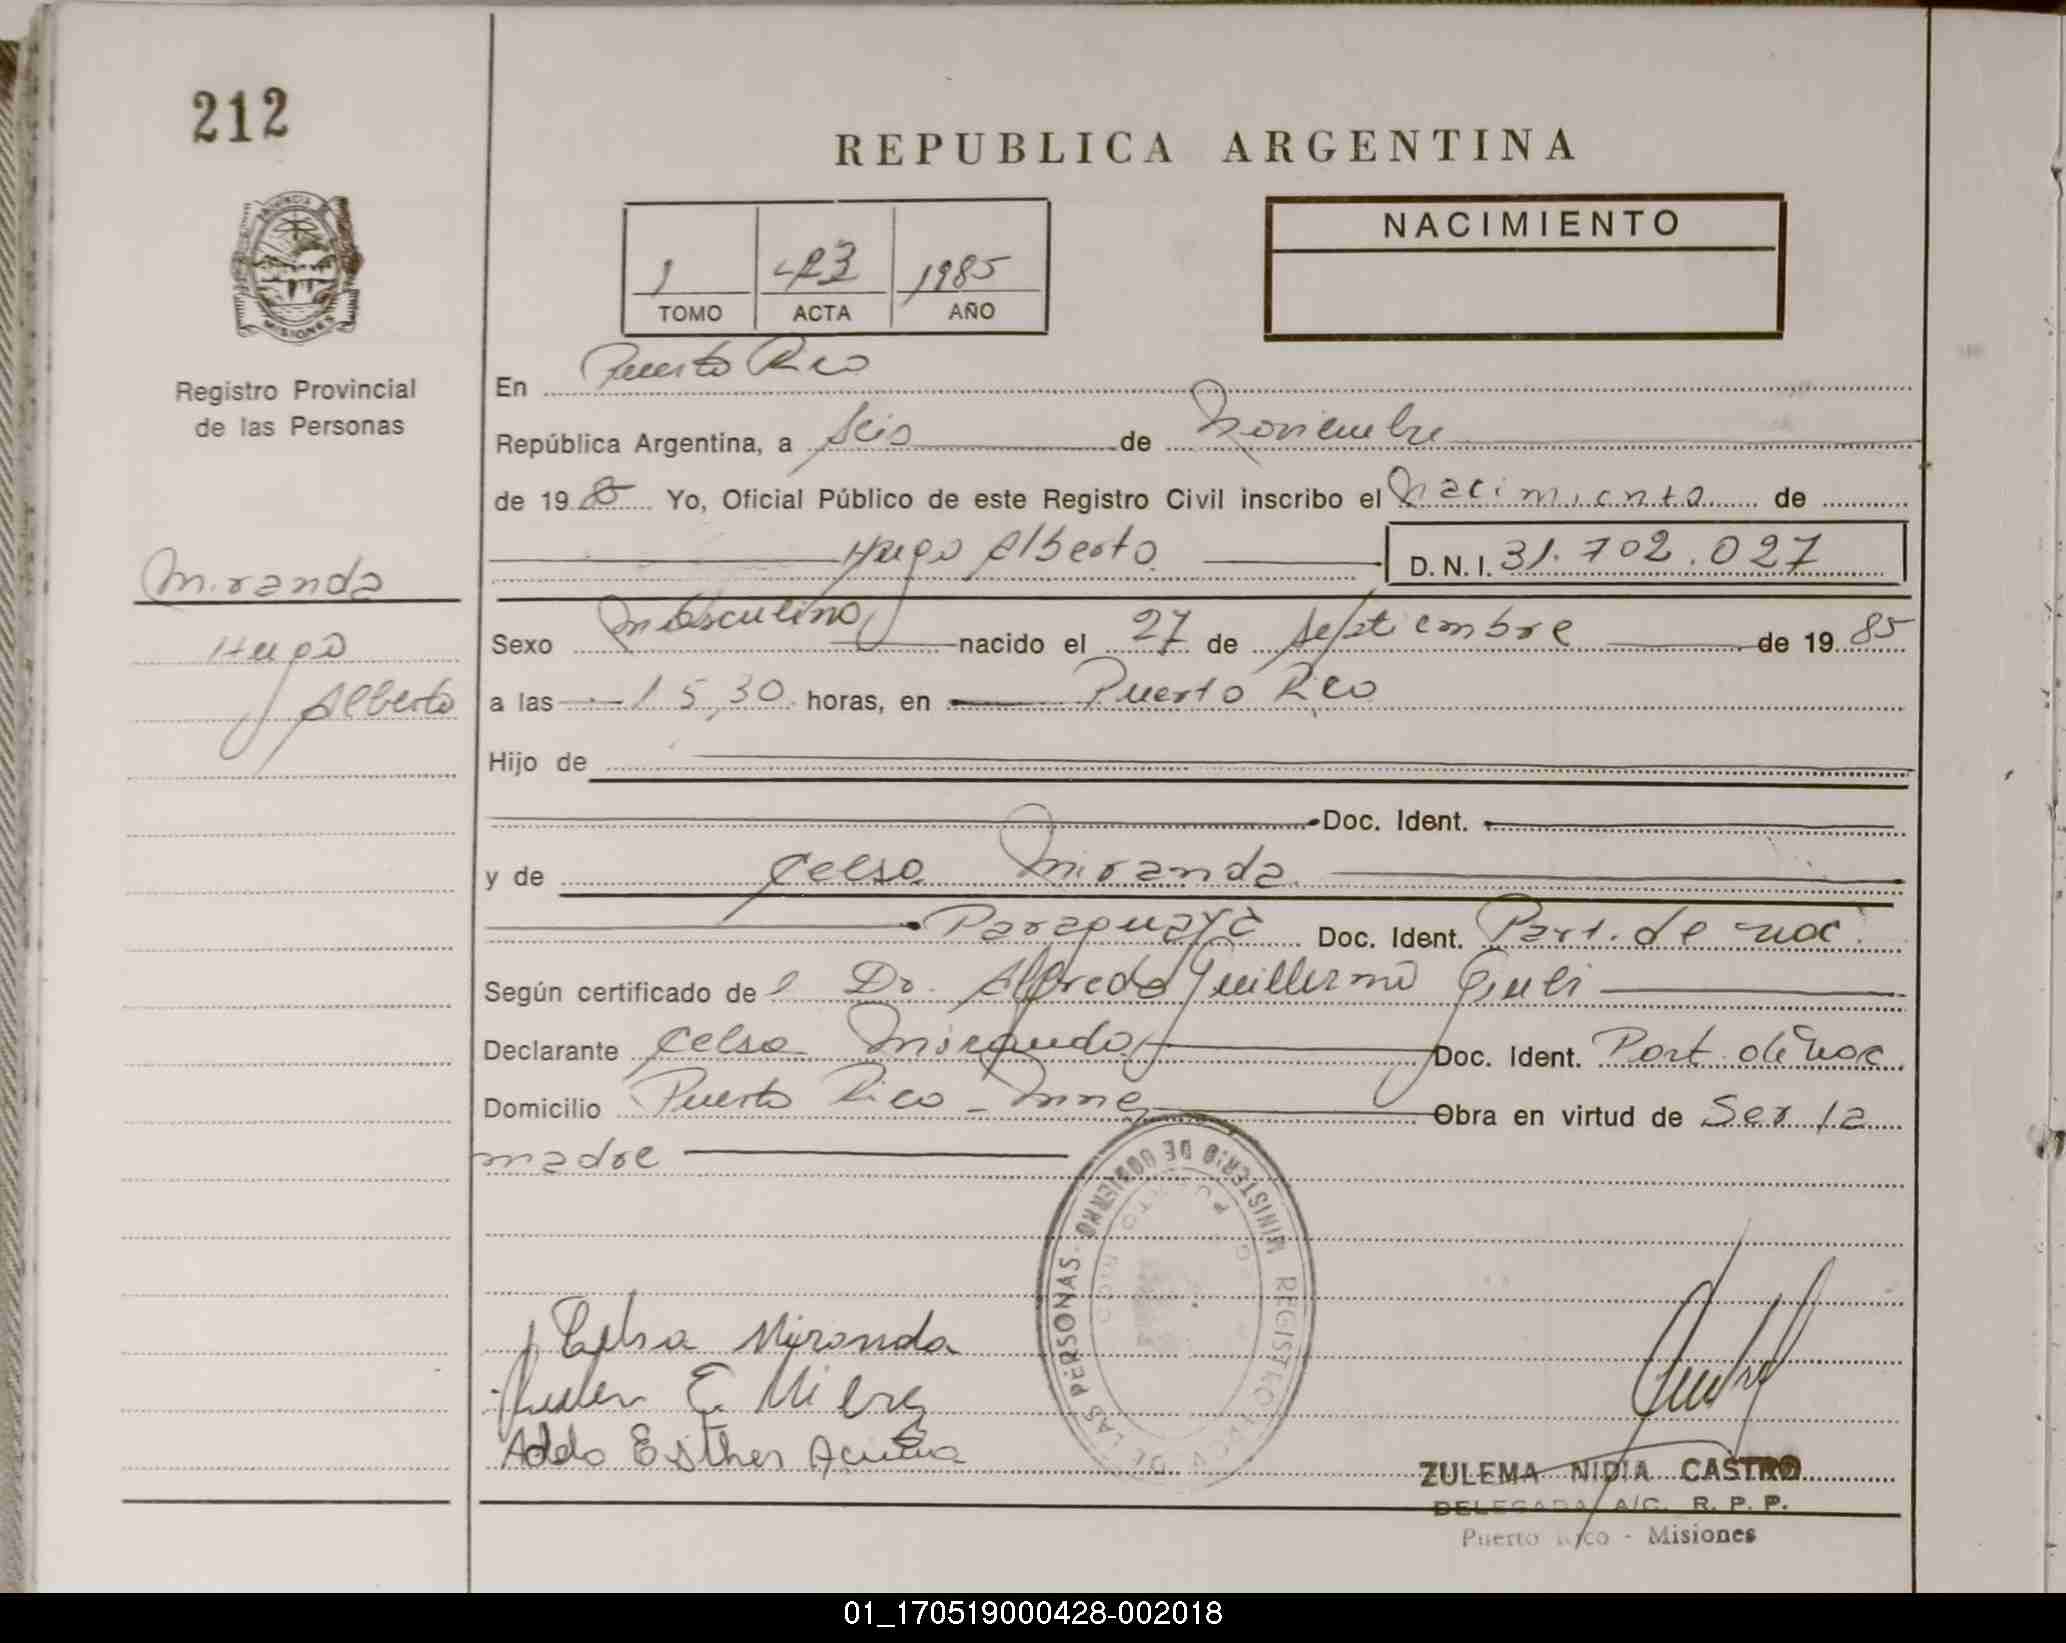 212
REPUBLICA ARGENTINA
NACIMIENTO
1 423 1985
TOMO ACTA AÑO
PROVINCIA DE MISIONES
Registro Provincial
de las Personas
Miranda
Hugo
Alberto
En Puerto Rico
República Argentina, a seis de Noviembre
de 1985 Yo, Oficial Público de este Registro Civil inscribo el Nacimiento de
Hugo Alberto D. N. I. 31.702.027
Sexo Masculino nacido el 27 de septiembre de 1985
a las 15,30 horas, en Puerto Rico
Hijo de
Doc. Ident.
y de Celsa Miranda
Paraguaya Doc. Ident. Part. de nac.
Según certificado del Dr. Alfredo Guillermo
Declarante Celsa Miranda Doc. Ident. Part. de nac.
Domicilio Puerto Rico - Mnes Obra en virtud de Ser la
madre
MINISTERIO DE GOBIERNO REGISTRO PROV. DE LAS PERSONAS
PUERTO RICO
Celsa Miranda
E.
Addo Esther Acuña
ZULEMA NIDIA CASTRO
DELEGADA A/C. R. P. P.
Puerto Rico - Misiones
01_170519000428-002018